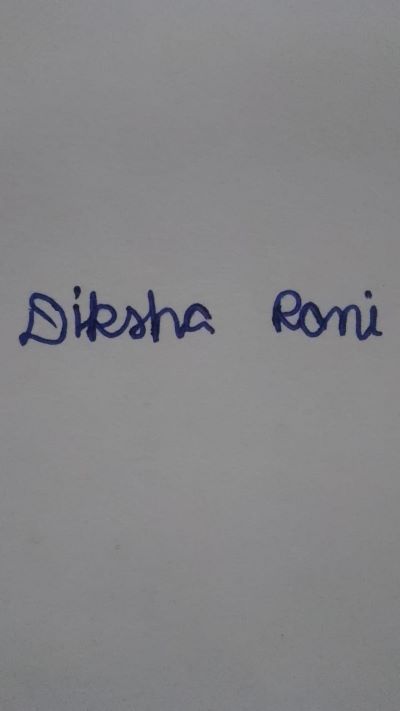 Diksha Rani